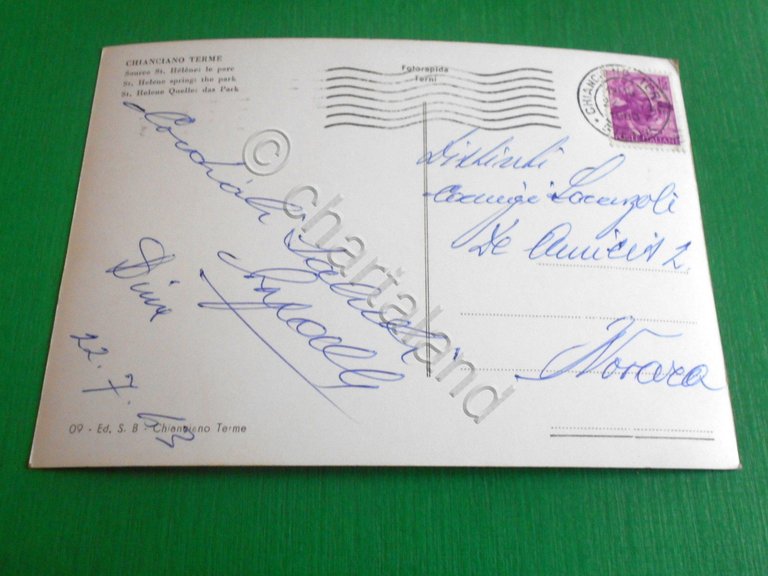 CHIANCIANO TERME
Source St. Hélène: le parc
St. Helene spring: the park
St. Helene Quelle: das Park
Fotorapida
Terni
Cordiali Saluti
Dina
22.7.63
Distinti
Coniugi
De Amicis 2
Novara
09 - Ed. S. B - Chianciano Terme
© chartaland